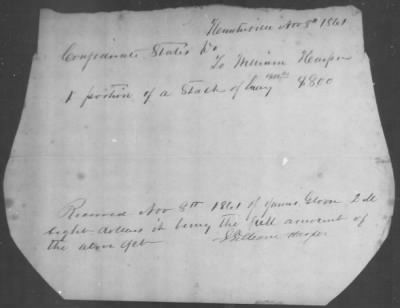 Nov 8th 1861
Confederate States Dr
To William Harper
A portion of a Stack of hay $800
Received Nov 8th 1861 of James
eight dollars it being the full amount of
the above act Harper